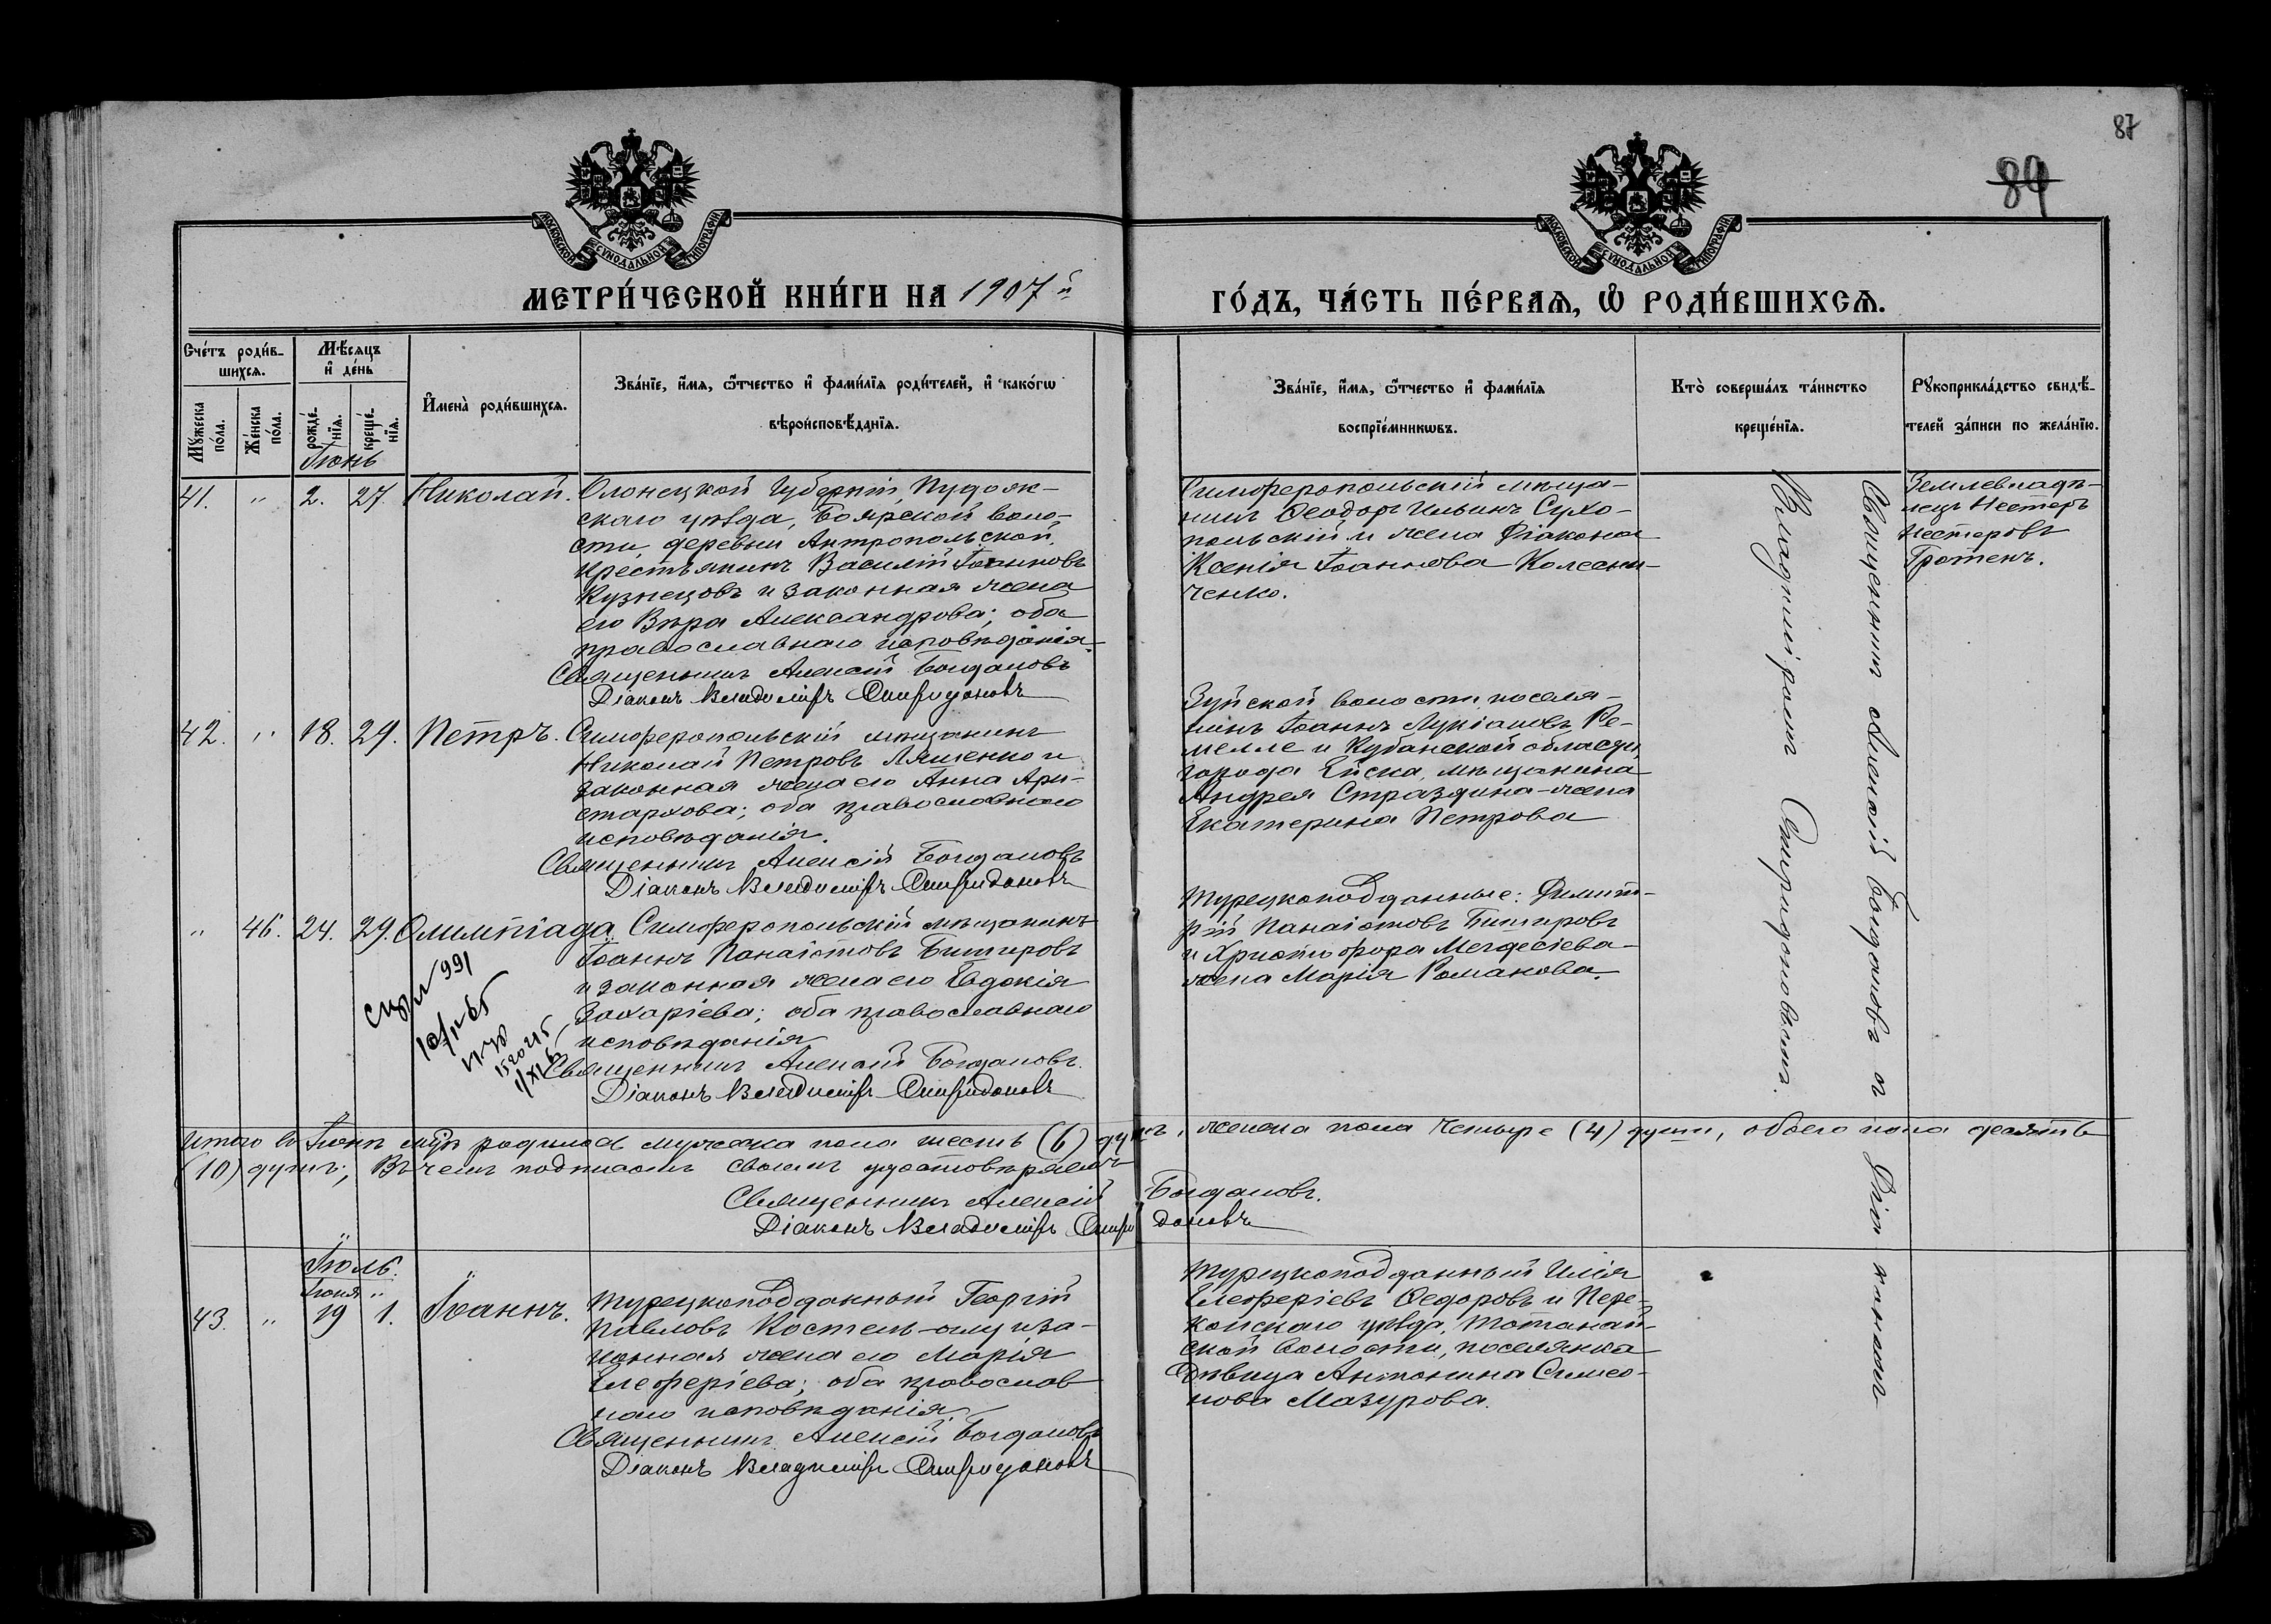 87
84
МОСКОВСКОЙ СѴНОДАЛЬНОЙ ТИПОГРАФІИ
МОСКОВСКОЙ СѴНОДАЛЬНОЙ ТИПОГРАФІИ
МЕТРИ́ЧЕСКОЙ КНИ́ГИ НА 1907й
ГО́ДЪ, ЧА́СТЬ ПЕ́РВАѦ, Ѽ РОДИ́ВШИХСѦ.
Сче́тъ роди́в-
шихсѧ.
Мѣ́сѧцъ
и҆ де́нь
Мꙋ́жеска
по́ла.
Же́нска
по́ла.
рожде́-
нїѧ.
креще́-
нїѧ.
И҆мена̀ роди́вшихсѧ.
Зва́нїе, и҆́мѧ, ѻ҆́тчество и҆ фами́лїѧ роди́телей, и҆ како́гѡ
вѣроисповѣ́данїѧ.
Зва́нїе, и҆́мѧ, ѻ҆́тчество и҆ фами́лїѧ
воспрїе́мникѡвъ.
Кто̀ соверша́лъ та́инство
креще́нїѧ.
Рꙋкоприкла́дство свидѣ́-
телей за́писи по жела́нїю.
Іюнь
41. " 2. 27. Николай.
Олонецкой Губерніи, Пудож-
скаго уѣзда, Боярской воло-
сти, деревни Антропольской,
крестьянинъ Василій Іоанновъ
Кузнецовъ и законная жена
его Вѣра Александрова; оба
православнаго исповѣданія.
Священникъ Алексій Богдановъ
Діаконъ Владиміръ Спиридоновъ
Симферопольскій мѣща-
нинъ Ѳеодоръ Ильинъ Сухо-
польскій и жена Діакона
Ксенія Іоаннова Колесни-
ченко.
Землевладѣ-
лецъ Нестеръ
Нестеровъ
Гротенъ.
Священникъ Алексій Богдановъ и Діаконъ
Владиміромъ Спиридоновымъ.
42. " 18. 29. Петръ.
Симферопольскій мѣщанинъ
Николай Петровъ Ляшенко и
законная жена его Анна Ари-
стархова; оба православнаго
исповѣданія.
Священникъ Алексій Богдановъ
Діаконъ Владиміръ Спиридоновъ
Зуйской волости поселя-
нинъ Іоаннъ Лукіановъ Ре-
мелле и Кубанской области,
города Ейска, мѣщанина
Андрея Страздина жена
Екатерина Петрова
" 46. 24. 29. Олимпіада
Симферопольскій мѣщанинъ
Іоаннъ Панаіотовъ Битировъ
и законная жена его Евдокія
Захаріева; оба православнаго
исповѣданія
Священникъ Алексій Богдановъ.
Діаконъ Владиміръ Спиридоновъ
Турецкоподданные: Димит-
рій Панаіотовъ Битировъ
и Христофора Мегдесіева
жена Марія Романова.
991
Итого въ Іюнѣ м-цѣ родилось мужеска пола шесть (6) душъ, женска пола четыре (4) души, обоего пола десять
(10) душъ; Въ чемъ подписомъ своимъ удостовѣряемъ
Священникъ Алексій Богдановъ.
Діаконъ Владиміръ Спиридоновъ
Іюль.
Іюня "
43. " 19 1. Іоаннъ.
Турецкоподданный Георгій
Павловъ Костель-оглу и за-
конная жена его Марія
Елефферіева; оба православ
наго исповѣданія.
Священникъ Алексій Богдановъ
Діаконъ Владиміръ Спиридоновъ
Турецкоподданный Илія
Елефферіевъ Ѳедоровъ и Пере-
копскаго уѣзда, Тотанай-
ской волости, поселянка
дѣвица Антонина Симео-
нова Мазурова.